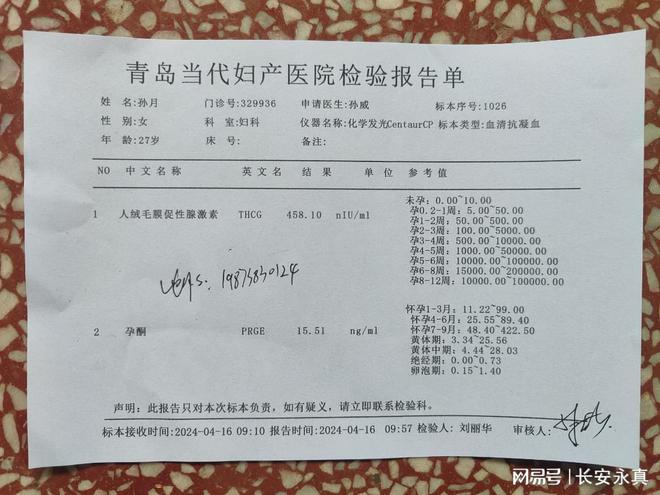 青岛当代妇产医院检验报告单
姓 名:孙月 门诊号:329936 申请医生:孙威 标本序号:1026
性 别:女 科 室:妇科 仪器名称:化学发光CentaurCP 标本类型:血清抗凝血
年 龄:27岁 床 号: 备注:
NO 中文名称 英文名 结 果 单 位 参考值
1 人绒毛膜促性腺激素 THCG 458.10 nIU/ml 未孕: 0.00~10.00
孕0.2-1周: 5.00~50.00
孕1-2周: 50.00~500.00
孕2-3周: 100.00~5000.00
孕3-4周: 500.00~10000.00
孕4-5周: 1000.00~50000.00
孕5-6周: 10000.00~100000.00
孕6-8周: 15000.00~200000.00
孕8-12周: 10000.00~100000.00
19875830124
2 孕酮 PRGE 15.51 ng/ml 怀孕1-3月: 11.22~99.00
怀孕4-6月: 25.55~89.40
怀孕7-9月: 48.40~422.50
黄体期: 3.34~25.56
黄体中期: 4.44~28.03
绝经期: 0.00~0.73
卵泡期: 0.15~1.40
声明: 此报告只对本次标本负责, 如有疑义, 请立即联系检验科。
标本接收时间:2024-04-16 09:10 报告时间:2024-04-16 09:57 检验人: 刘丽华 审核人:
网易号 | 长安永真